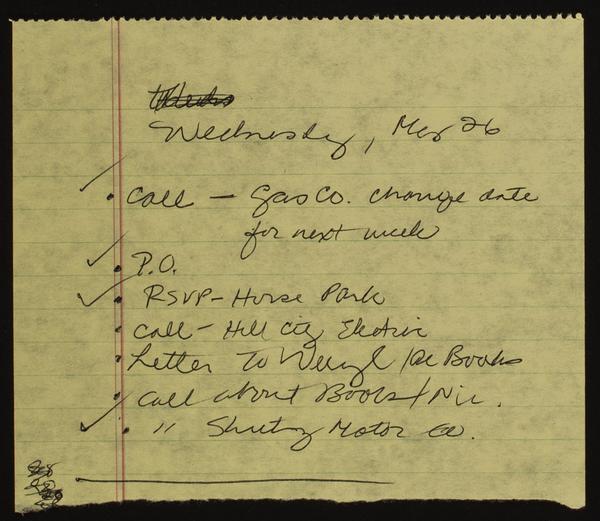 Wednesday, May 26
• Call — Gas Co. change date
for next week
• P.O.
• RSVP - Horse Park
• Call - Hill City Electric
• Letter To Weryl /Re Books
• Call about Books/
• " Motor Co.